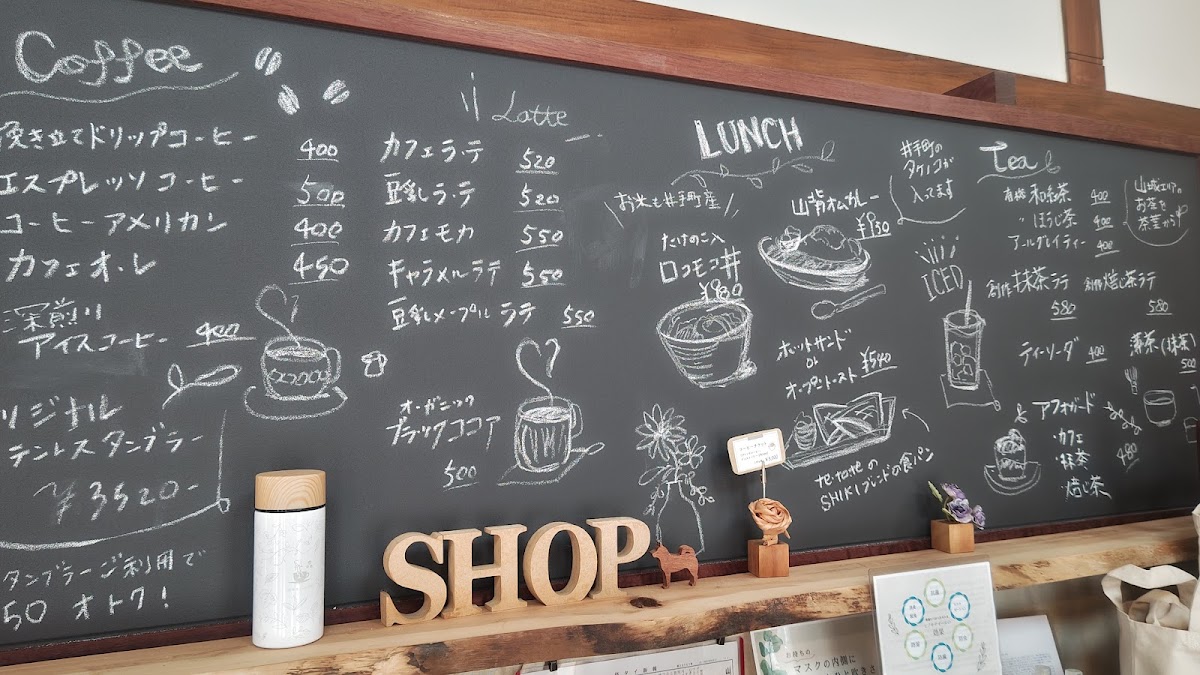 Coffee
挽き立てドリップコーヒー 400
エスプレッソコーヒー 500
コーヒーアメリカン 400
カフェオ・レ 450
深煎り
アイスコーヒー 400
リジナル
テンレスタンブラー
¥3520-
タンブラーご利用で
50オトク!
Latte
カフェラ・テ 520
豆乳ラ・テ 520
カフェモカ 550
キャラメルラテ 550
豆乳メープルラテ 550
オーガニック
ブラックココア
500
LUNCH
お米も井手町産
たけのこ入
ロコモコ丼
¥980
山背オムカレー
¥930
井手町の
タケノコが
入ってます
ホットサンド
or
オープントースト ¥540
te-tateの
SHIKIブレンドの食パン
Tea
有機 和紅茶 400
〃 ほうじ茶 400
アールグレイティー 400
山城エリアの
お茶を
茶葉から
ICED
創作抹茶ラテ 580
創作焙じ茶ラテ 580
ティーソーダ 400
薄茶(抹茶) 500
アフォガード
・カフェ
・抹茶
・焙じ茶
480
SHOP
お持ちの
マスクの内側に
効果